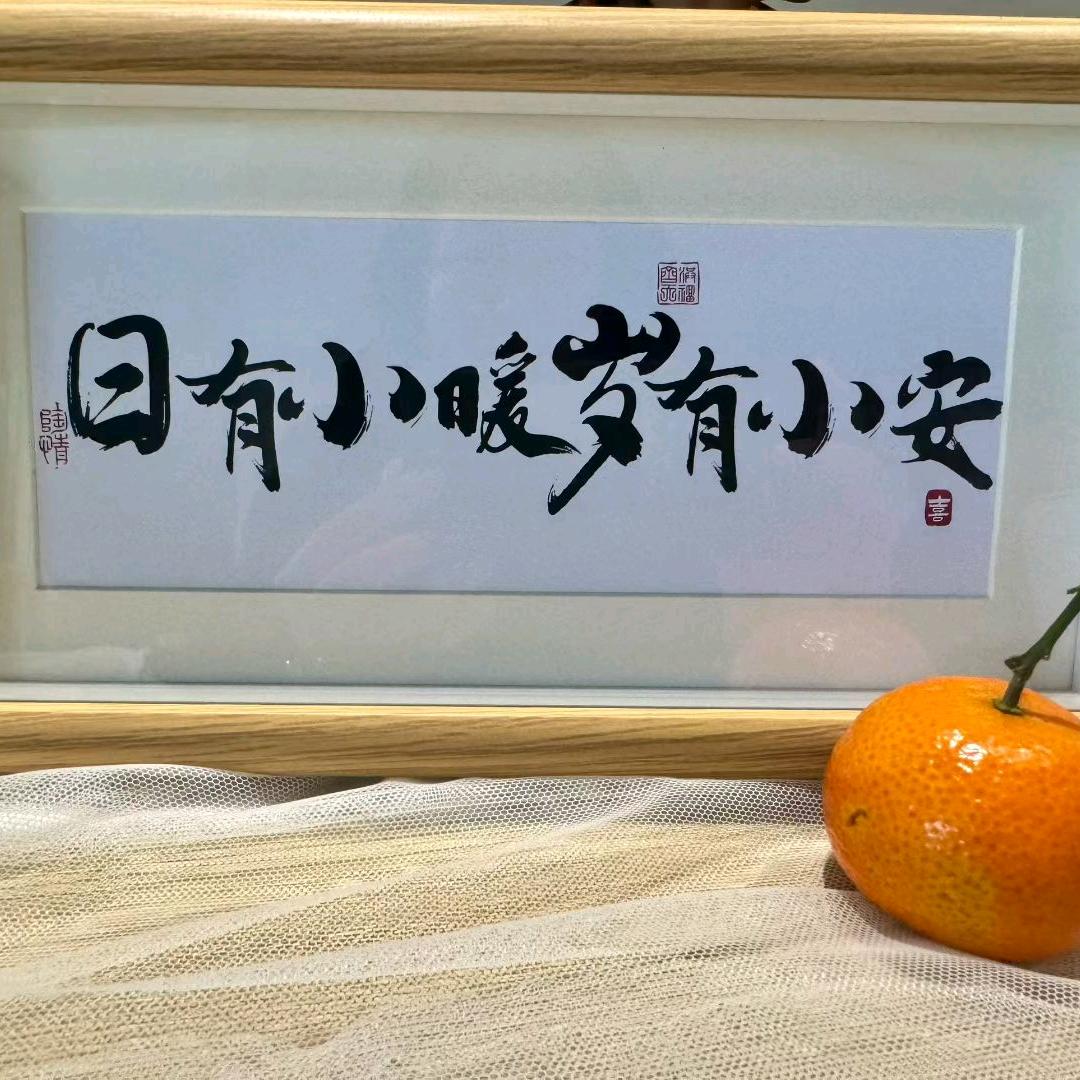 日有小暖岁有小安
陶情
喜